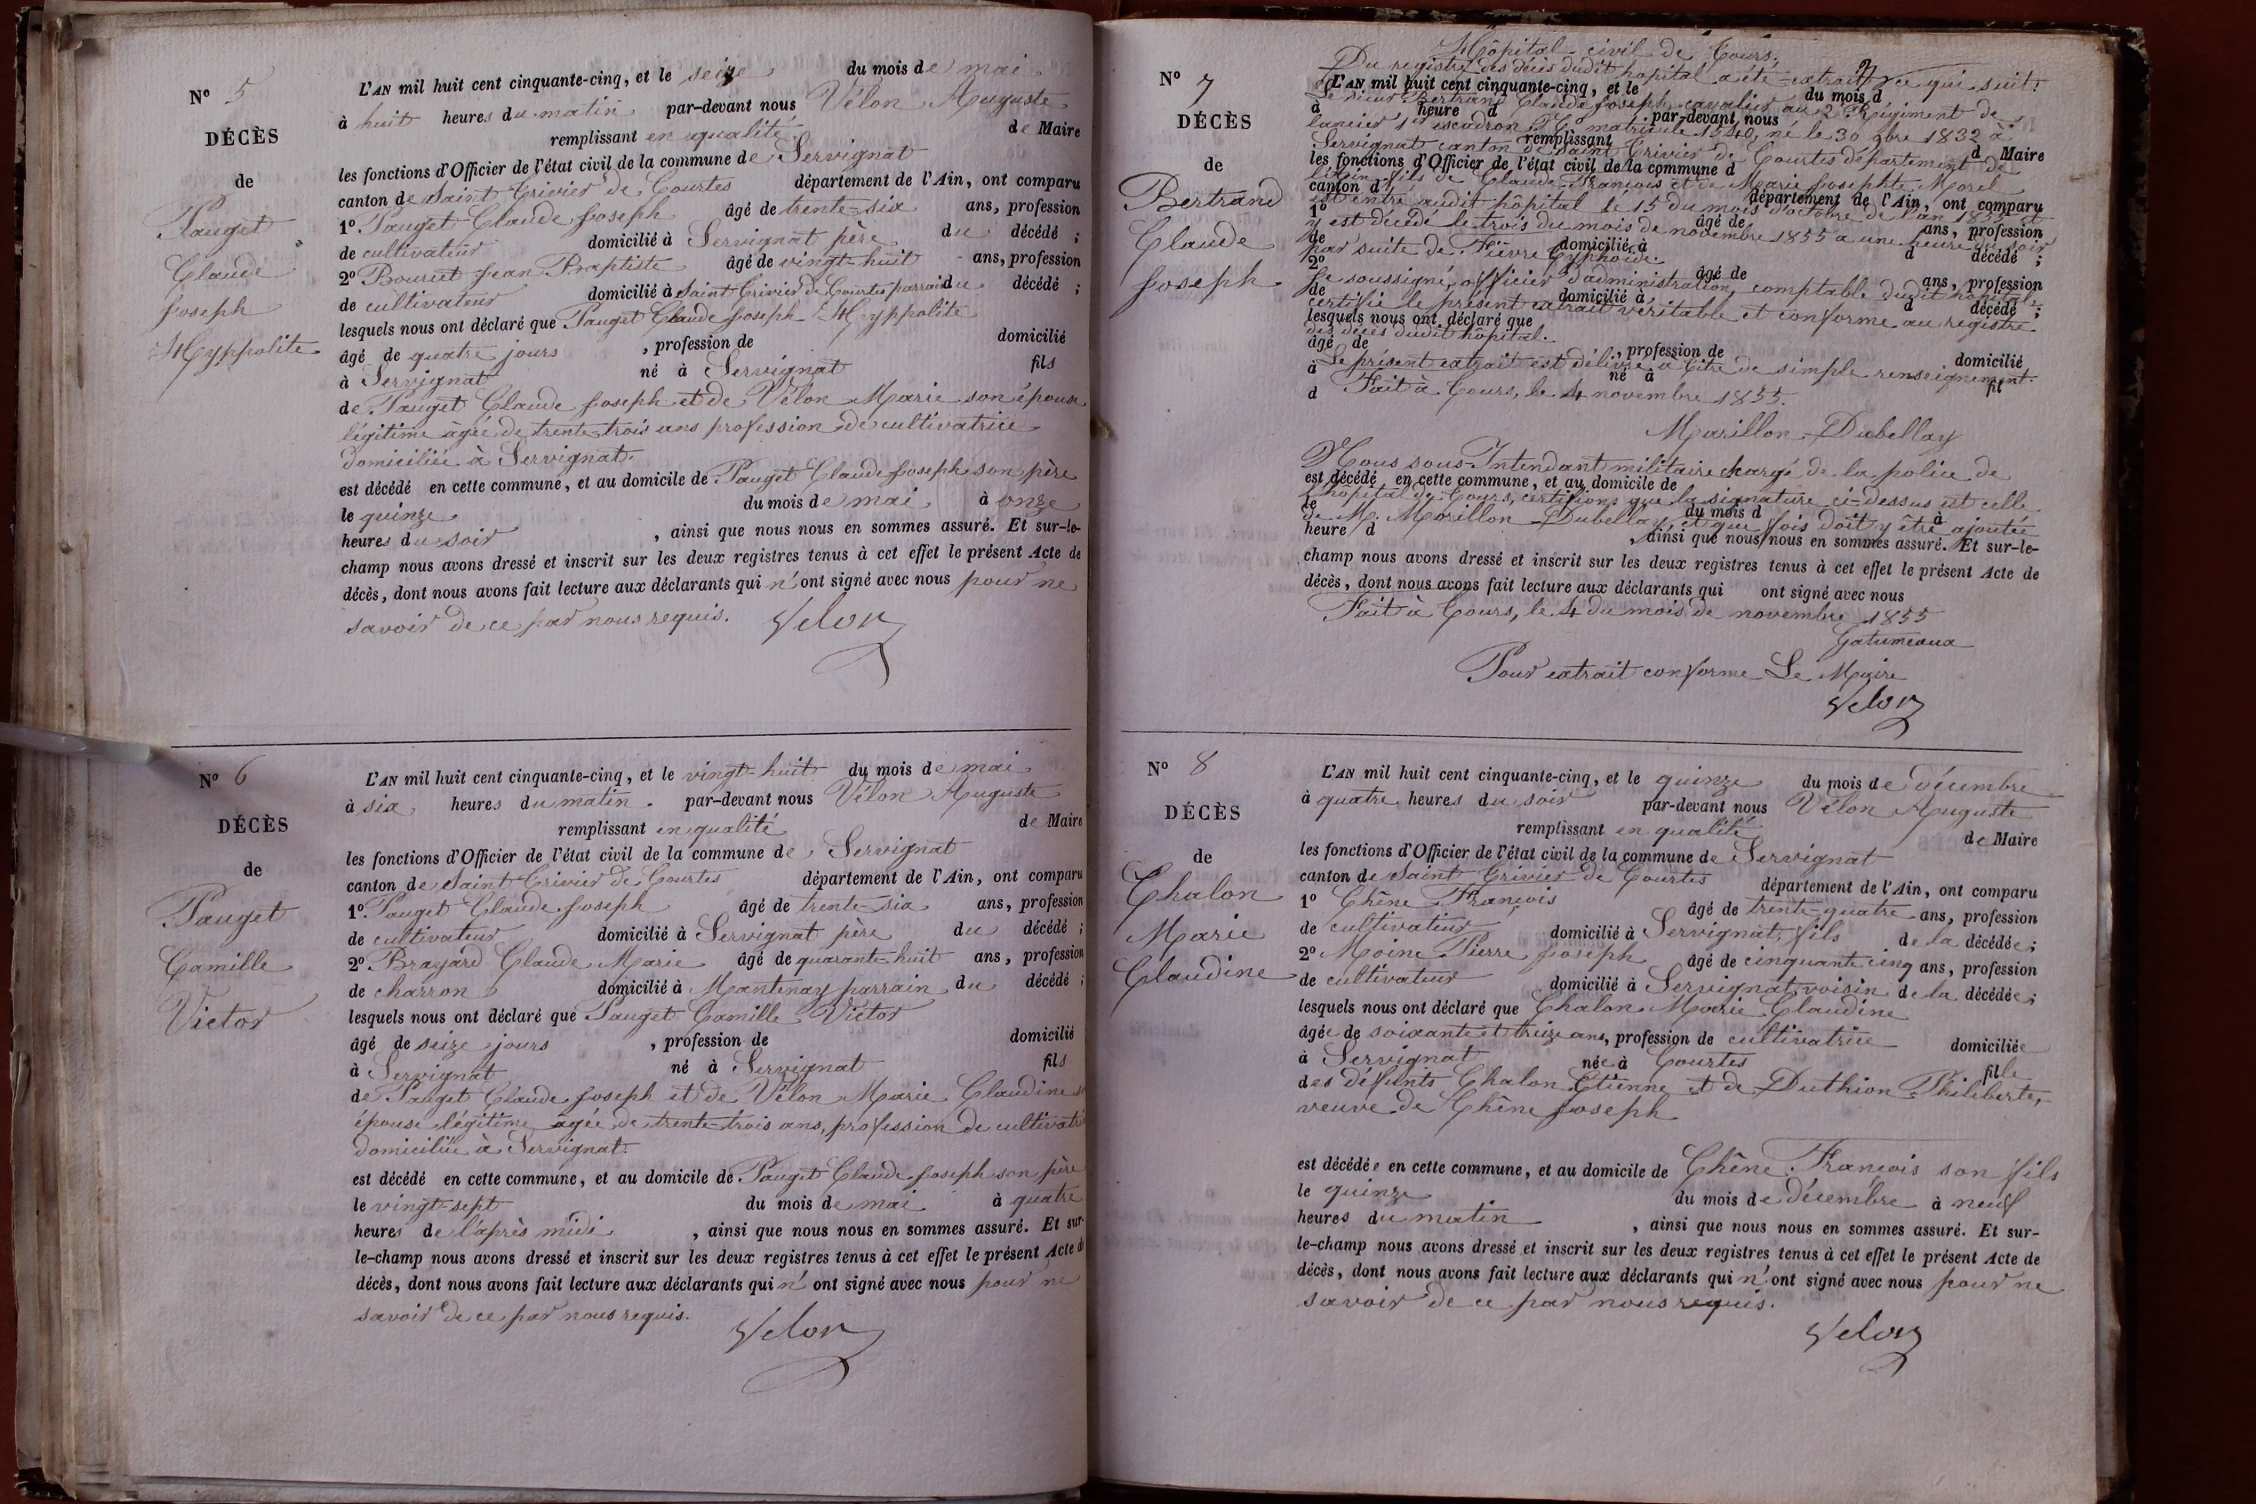 N° 5
DÉCÈS
de
Pauget
Claude
Joseph
Hyppolite
L'AN mil huit cent cinquante-cinq, et le seize du mois de mai
à huit heures du matin par-devant nous Vélon Auguste
remplissant en qualité de Maire
les fonctions d'Officier de l'état civil de la commune de Servignat
canton de Saint Trivier de Courtes département de l'Ain, ont comparu
1° Pauget Claude Joseph âgé de trente-six ans, profession
de cultivateur domicilié à Servignat père du décédé ;
2° Bouret Jean Baptiste âgé de vingt-huit ans, profession
de cultivateur domicilié à Saint Trivier de Courtes parrain du décédé ;
lesquels nous ont déclaré que Pauget Claude Joseph Hyppolite
âgé de quatre jours , profession de domicilié
à Servignat né à Servignat fils
de Pauget Claude Joseph et de Vélon Marie son épouse
légitime âgée de trente-trois ans profession de cultivatrice
domiciliée à Servignat.
est décédé en cette commune, et au domicile de Pauget Claude Joseph son père
le quinze du mois de mai à onze
heures du soir , ainsi que nous nous en sommes assuré. Et sur-le-
champ nous avons dressé et inscrit sur les deux registres tenus à cet effet le présent Acte de
décès, dont nous avons fait lecture aux déclarants qui n'ont signé avec nous pour ne
savoir de ce par nous requis. Velon
N° 6
DÉCÈS
de
Pauget
Camille
Victor
L'AN mil huit cent cinquante-cinq, et le vingt-huit du mois de mai
à six heures du matin. par-devant nous Vélon Auguste
remplissant en qualité de Maire
les fonctions d'Officier de l'état civil de la commune de Servignat
canton de Saint Trivier de Courtes département de l'Ain, ont comparu
1° Pauget Claude Joseph âgé de trente-six ans, profession
de cultivateur domicilié à Servignat père du décédé ;
2° Brayard Claude Marie âgé de quarante-huit ans, profession
de charron domicilié à Mantenay parrain du décédé ;
lesquels nous ont déclaré que Pauget Camille Victor
âgé de seize jours , profession de domicilié
à Servignat né à Servignat fils
de Pauget Claude Joseph et de Vélon Marie Claudine
épouse légitime âgée de trente-trois ans, profession de cultivatri
domiciliée à Servignat.
est décédé en cette commune, et au domicile de Pauget Claude Joseph son père
le vingt-sept du mois de mai à quatre
heures de l'après midi , ainsi que nous nous en sommes assuré. Et sur-
le-champ nous avons dressé et inscrit sur les deux registres tenus à cet effet le présent Acte d
décès, dont nous avons fait lecture aux déclarants qui n'ont signé avec nous pour ne
savoir de ce par nous requis. Velon
N° 7
DÉCÈS
de
Bertrand
Claude
Joseph
Hôpital civil de Tours.
Du registre des décès dudit hopital a été extrait ce qui suit:
L'AN mil huit cent cinquante-cinq, et le du mois d
Le sieur Bertrand Claude Joseph cavalier au 2e Régiment de
à heure d par-devant nous
lancier 1er escadron N° matricule 1540, né le 30 9bre 1832 à
remplissant d Maire
Servignat canton de Saint Trivier de Courtes département de
les fonctions d'Officier de l'état civil de la commune d
l'Ain, fils de Claude François et de Marie Josephte Morel
canton d département de l'Ain, ont comparu
est entré audit hôpital le 15 du mois d'octobre de l'an 1855 et
1° âgé de ans, profession
y est décédé le trois du mois de novembre 1855 à une heure du soir
de domicilié à d décédé ;
par suite de Fièvre typhoïde.
2° âgé de ans, profession
Je soussigné, officier d'administration comptable dudit hôpital
de domicilié à d décédé ;
certifie le présent extrait véritable et conforme au registre
lesquels nous ont déclaré que
des décès dudit hôpital.
âgé de , profession de domicilié
Le présent extrait est délivré à titre de simple renseignement.
à né à fil
d Fait à Tours, le 4 novembre 1855.
Marillon-Dubellay
Nous sous-Intendant militaire chargé de la police de
est décédé en cette commune, et au domicile de
l'hôpital de Tours, certifions que la signature ci-dessus est celle
le du mois d à
de M. Morillon-Dubellay, et que fois doit y être ajoutée
heure d , ainsi que nous nous en sommes assuré. Et sur-le-
champ nous avons dressé et inscrit sur les deux registres tenus à cet effet le présent Acte de
décès, dont nous avons fait lecture aux déclarants qui ont signé avec nous
Fait à Tours, le 4 du mois de novembre 1855
Gatumeaux
Pour extrait conforme Le Maire
Velon
N° 8
DÉCÈS
de
Chalon
Marie
Claudine
L'AN mil huit cent cinquante-cinq, et le quinze du mois de décembre
à quatre heures du soir par-devant nous Vélon Auguste
remplissant en qualité de Maire
les fonctions d'Officier de l'état civil de la commune de Servignat
canton de Saint Trivier de Courtes département de l'Ain, ont comparu
1° Chêne François âgé de trente-quatre ans, profession
de cultivateur domicilié à Servignat, fils de la décédée ;
2° Moine Pierre Joseph âgé de cinquante cinq ans, profession
de cultivateur domicilié à Servignat voisin de la décédée ;
lesquels nous ont déclaré que Chalon Marie Claudine
âgée de soixante et treize ans, profession de cultivatrice domiciliée
à Servignat née à Courtes fille
des défunts Chalon Etienne et de Duthion Philiberte,
veuve de Chêne Joseph
est décédée en cette commune, et au domicile de Chêne François son fils
le quinze du mois de décembre à neuf
heures du matin , ainsi que nous nous en sommes assuré. Et sur-
le-champ nous avons dressé et inscrit sur les deux registres tenus à cet effet le présent Acte de
décès, dont nous avons fait lecture aux déclarants qui n'ont signé avec nous pour ne
savoir de ce par nous requis.
Velon